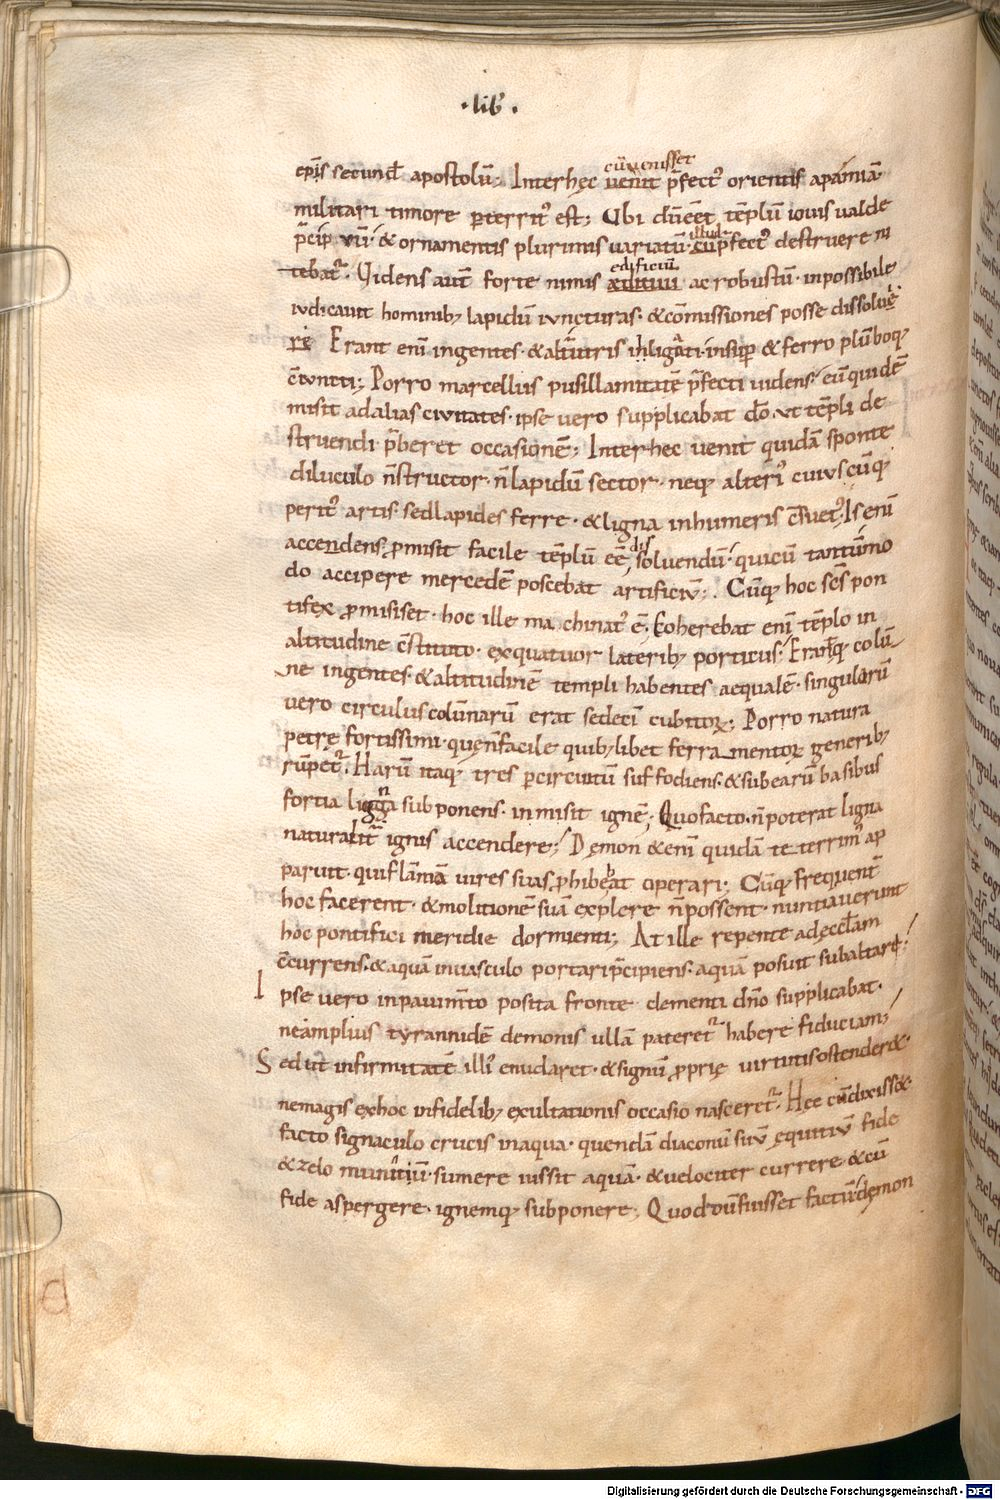 ·lib̄·
cū uenisset
ep̄is secund̄ apostolū; Interhęc uenit p̄fect᷒ orientis apamiā
militari timore p̄territ᷒ est; Ubi dūēēt tēplū iouis ualde
illud
p̄cipuū· & ornamentis plurimis uariatū· cū p̄fect᷒ destruere ni
edificiū
tebat᷑· Uidens aut̄ forte nimis ædituū ac robustū· inpossibile
iudicauit hominib; lapidū iuncturas· & cōmissiones posse dissolue
re· Erant eni̅ ingentes· & alt̄utris inligati· insup̄ & ferro plūboq;
c̄iuncti; Porro marcellus pusillamitatē p̄fecti uidens· eū quidē
misit ad alias ciuitates· ipse uero supplicabat dō· ut tēpli de
struendi p̄beret occasionē; Interhec uenit quidā sponte
diluculo n̄structor· n̄ lapidū sector· neq; alteri᷒ cuiuscūq;
perit᷒ artis· sed lapides ferre· & ligna inhumeris c̄suet᷒; Is eni̅
dis
accendens p̄misit facile tēplū ēē soluendū· qui cū tantūmo
do accipere mercedē poscebat artificiū; Cūq; hoc sc̄s pon
tifex p̄misiset· hoc ille machinat᷒ ē· Coherebat eni̅ tēplo in
altitudine c̄stituto· ex quatuor laterib; porticus· Erantq; colū
ne ingentes· & altitudinē templi habentes aequalē· singularū
uero circulus colūnarū erat sedeci̅ cubitoꝝ; Porro natura
petrę fortissimi· quę n̄ facile quib; libet ferramentoꝝ generib;
rūpet᷑· Harū itaq; tres p̄circuitū suffodiens· & subearū basibus
fortia ligna subponens· inmisit ignē; Quo facto· n̄ poterat ligna
naturalit̄ ignis accendere; Dęmon & eni̅ quidā teterrim᷒ ap
paruit· qui flāmā uires suas p̄hibebat operari; Cūq; frequent̄
hoc facerent· & molitionē suā explere n̄ possent· nuntiauerunt
hoc pontifici meridie dormienti; At ille repente adęccl̄am
c̄currens· & aquā inuasculo portari p̄cipiens· aquā posuit subaltare;
I pse uero inpauim̄to posita fronte clementi dn̄o supplicabat·
ne amplius tyrannidē demonis ullā pateret᷑ habere fiduciam;
S ed ut infirmitatē illi᷒ enudaret· & signū p̄prię uirtutis ostender&·
ne magis exhoc infidelib; exultationis occasio nasceret᷑· Hec cū dixiss&
facto signaculo crucis inaqua· quendā diaconū suū ęquitiū fide
& zelo munitū· sumere iussit aquā· & uelociter currere & cū
fide aspergere· ignemq; subponere; Quod dū fuisset factū· dęmon